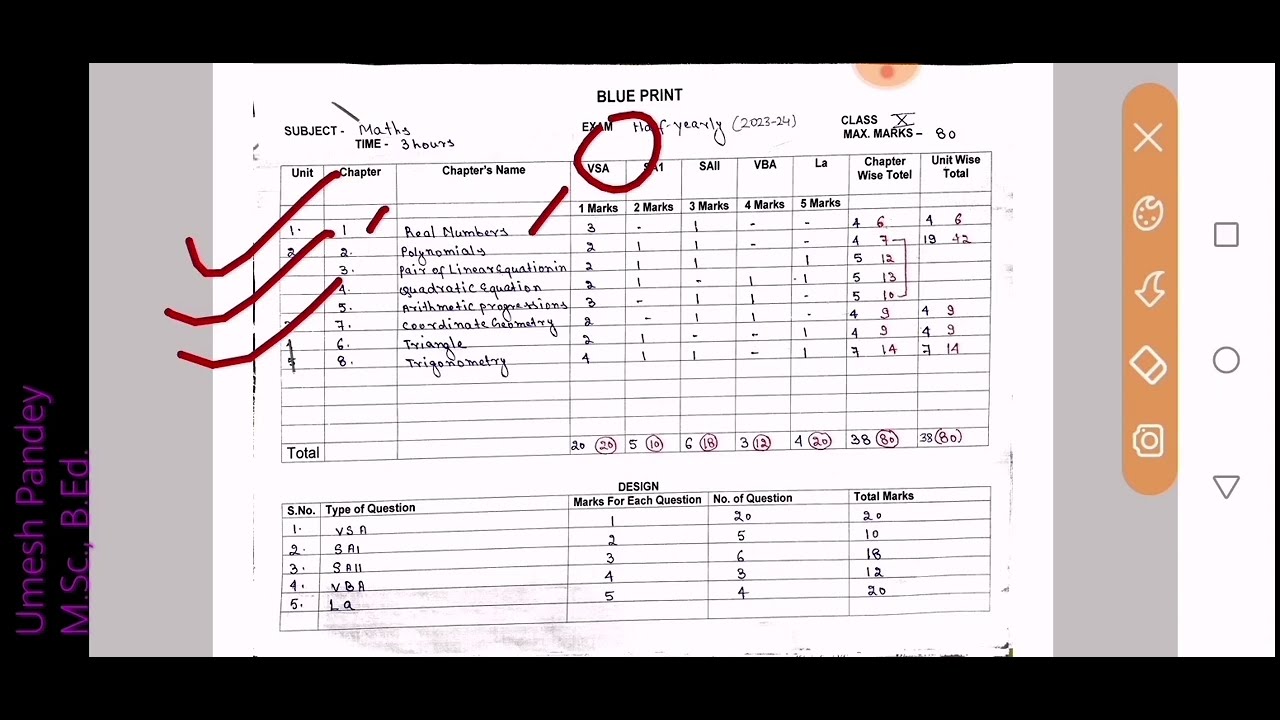 BLUE PRINT
SUBJECT - Maths EXAM Half-yearly (2023-24) CLASS X
TIME - 3 hours MAX. MARKS - 80
Unit Chapter Chapter's Name VSA SA1 SAII VBA La Chapter Wise Totel Unit Wise Total
1 Marks 2 Marks 3 Marks 4 Marks 5 Marks
1. 1 Real Numbers 3 - 1 - - 4 6 4 6
2. 2. Polynomials 2 1 1 - - 4 7 19 42
3. Pair of Linear Equation in 2 1 1 1 5 12
4. Quadratic Equation 2 1 - 1 1 5 13
5. Arithmetic progressions 3 - 1 1 - 5 10
7. Coordinate Geometry 2 - 1 1 - 4 9 4 9
6. Triangle 2 1 - - 1 4 9 4 9
8. Trigonometry 4 1 1 - 1 7 14 7 14
Total 20 20 5 10 6 18 3 12 4 20 38 80 38 80
DESIGN
S.No. Type of Question Marks For Each Question No. of Question Total Marks
1. VSA 1 20 20
2. SAI 2 5 10
3. SAII 3 6 18
4. VBA 4 3 12
5. La 5 4 20
Umesh Pandey
M.Sc., B.Ed.